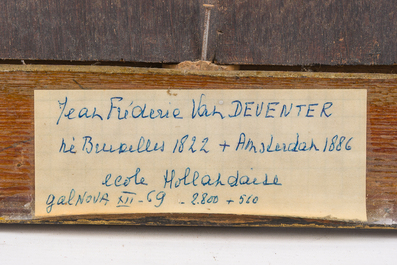 Jean Fréderic Van DEVENTER
né Bruxelles 1822 + Amsterdam 1886
ecole Hollandaise
gal NOVA XII - 69 - 2800 + 560